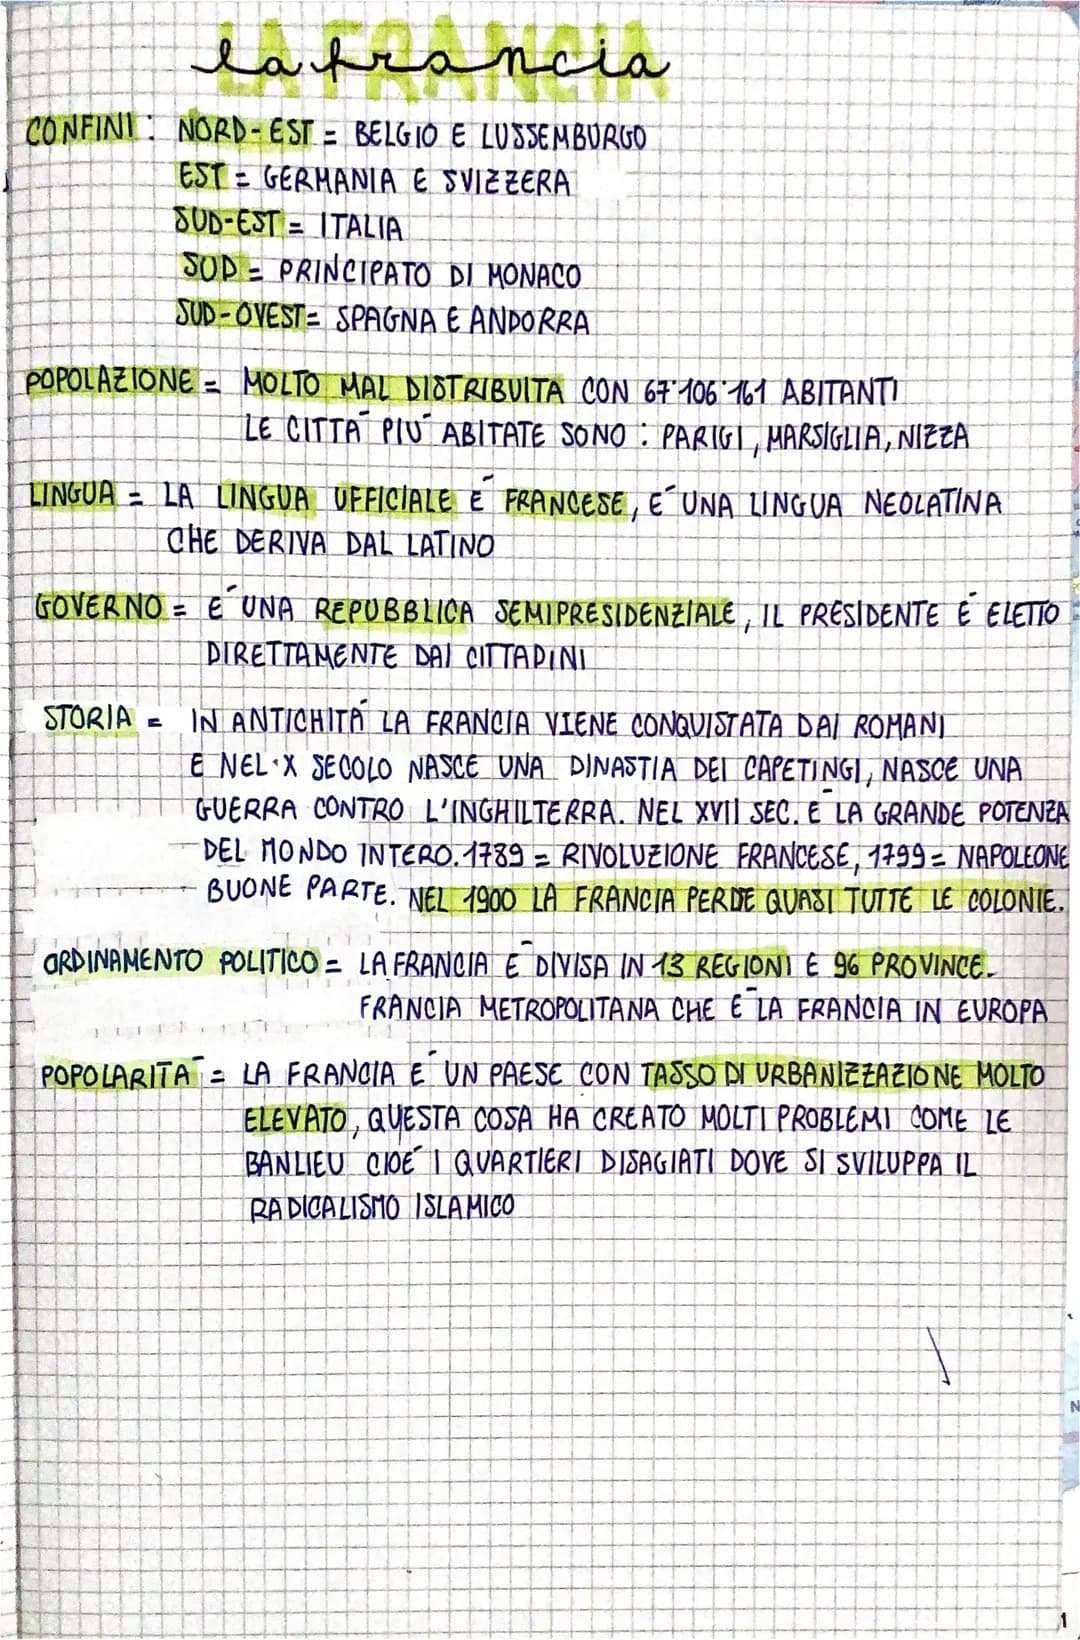 LA FRANCIA
la francia
CONFINI: NORD-EST = BELGIO E LUSSEMBURGO
EST = GERMANIA E SVIZZERA
SUD-EST = ITALIA
SUD = PRINCIPATO DI MONACO
SUD-OVEST = SPAGNA E ANDORRA
POPOLAZIONE = MOLTO MAL DISTRIBUITA CON 67'106'161 ABITANTI
LE CITTÀ PIÙ ABITATE SONO: PARIGI, MARSIGLIA, NIZZA
LINGUA = LA LINGUA UFFICIALE È FRANCESE, È UNA LINGUA NEOLATINA
CHE DERIVA DAL LATINO
GOVERNO = È UNA REPUBBLICA SEMIPRESIDENZIALE, IL PRESIDENTE È ELETTO
DIRETTAMENTE DAI CITTADINI
STORIA = IN ANTICHITÀ LA FRANCIA VIENE CONQUISTATA DAI ROMANI
E NEL X SECOLO NASCE UNA DINASTIA DEI CAPETINGI, NASCE UNA
GUERRA CONTRO L'INGHILTERRA. NEL XVII SEC. È LA GRANDE POTENZA
DEL MONDO INTERO. 1789 = RIVOLUZIONE FRANCESE, 1799 = NAPOLEONE
BUONE PARTE. NEL 1900 LA FRANCIA PERDE QUASI TUTTE LE COLONIE.
ORDINAMENTO POLITICO = LA FRANCIA È DIVISA IN 13 REGIONI E 96 PROVINCE.
FRANCIA METROPOLITANA CHE È LA FRANCIA IN EUROPA
POPOLARITÀ = LA FRANCIA È UN PAESE CON TASSO DI URBANIZZAZIONE MOLTO
ELEVATO, QUESTA COSA HA CREATO MOLTI PROBLEMI COME LE
BANLIEU CIOÈ I QUARTIERI DISAGIATI DOVE SI SVILUPPA IL
RADICALISMO ISLAMICO
N
1